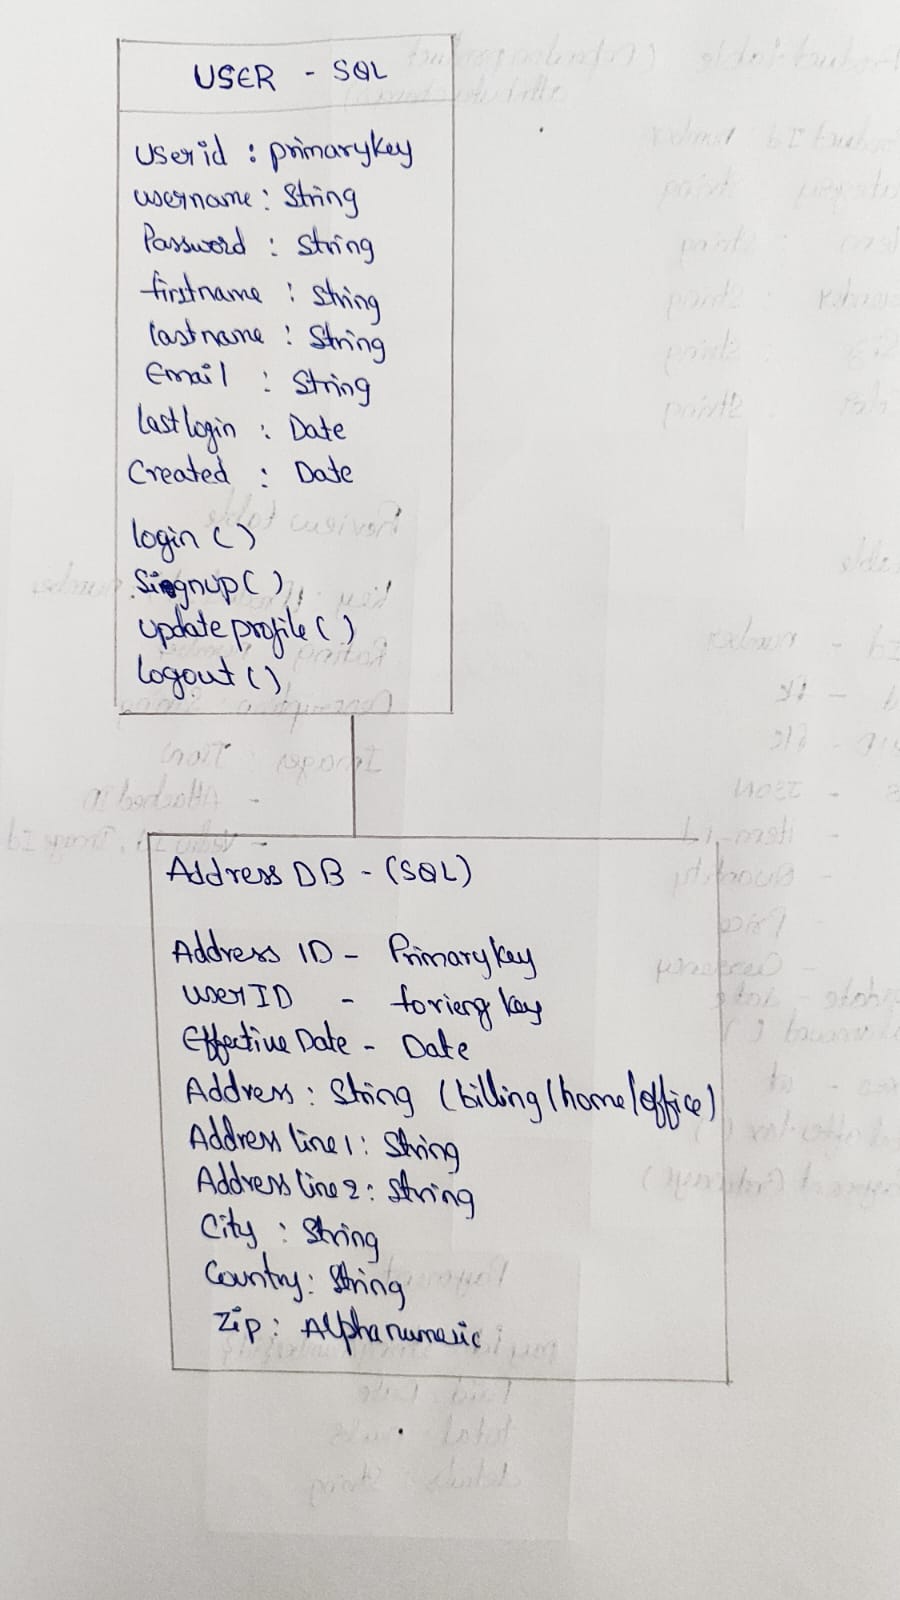 USER - SQL
Userid : primarykey
username : String
Password : String
firstname : String
lastname : String
Email : String
Lastlogin : Date
Created : Date
login ( )
Signup ( )
Update profile ( )
logout ( )
Address DB - (SQL)
Address ID - Primary key
User ID - forieng key
Effective Date - Date
Address : String (billing/home/office)
Address line 1 : String
Address line 2 : String
City : String
Country : String
Zip : Alphanumeric